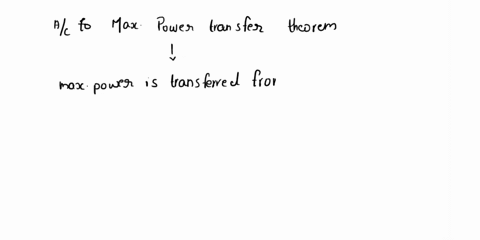 A/c to Max. Power transfer theorem
max. power is transferred from